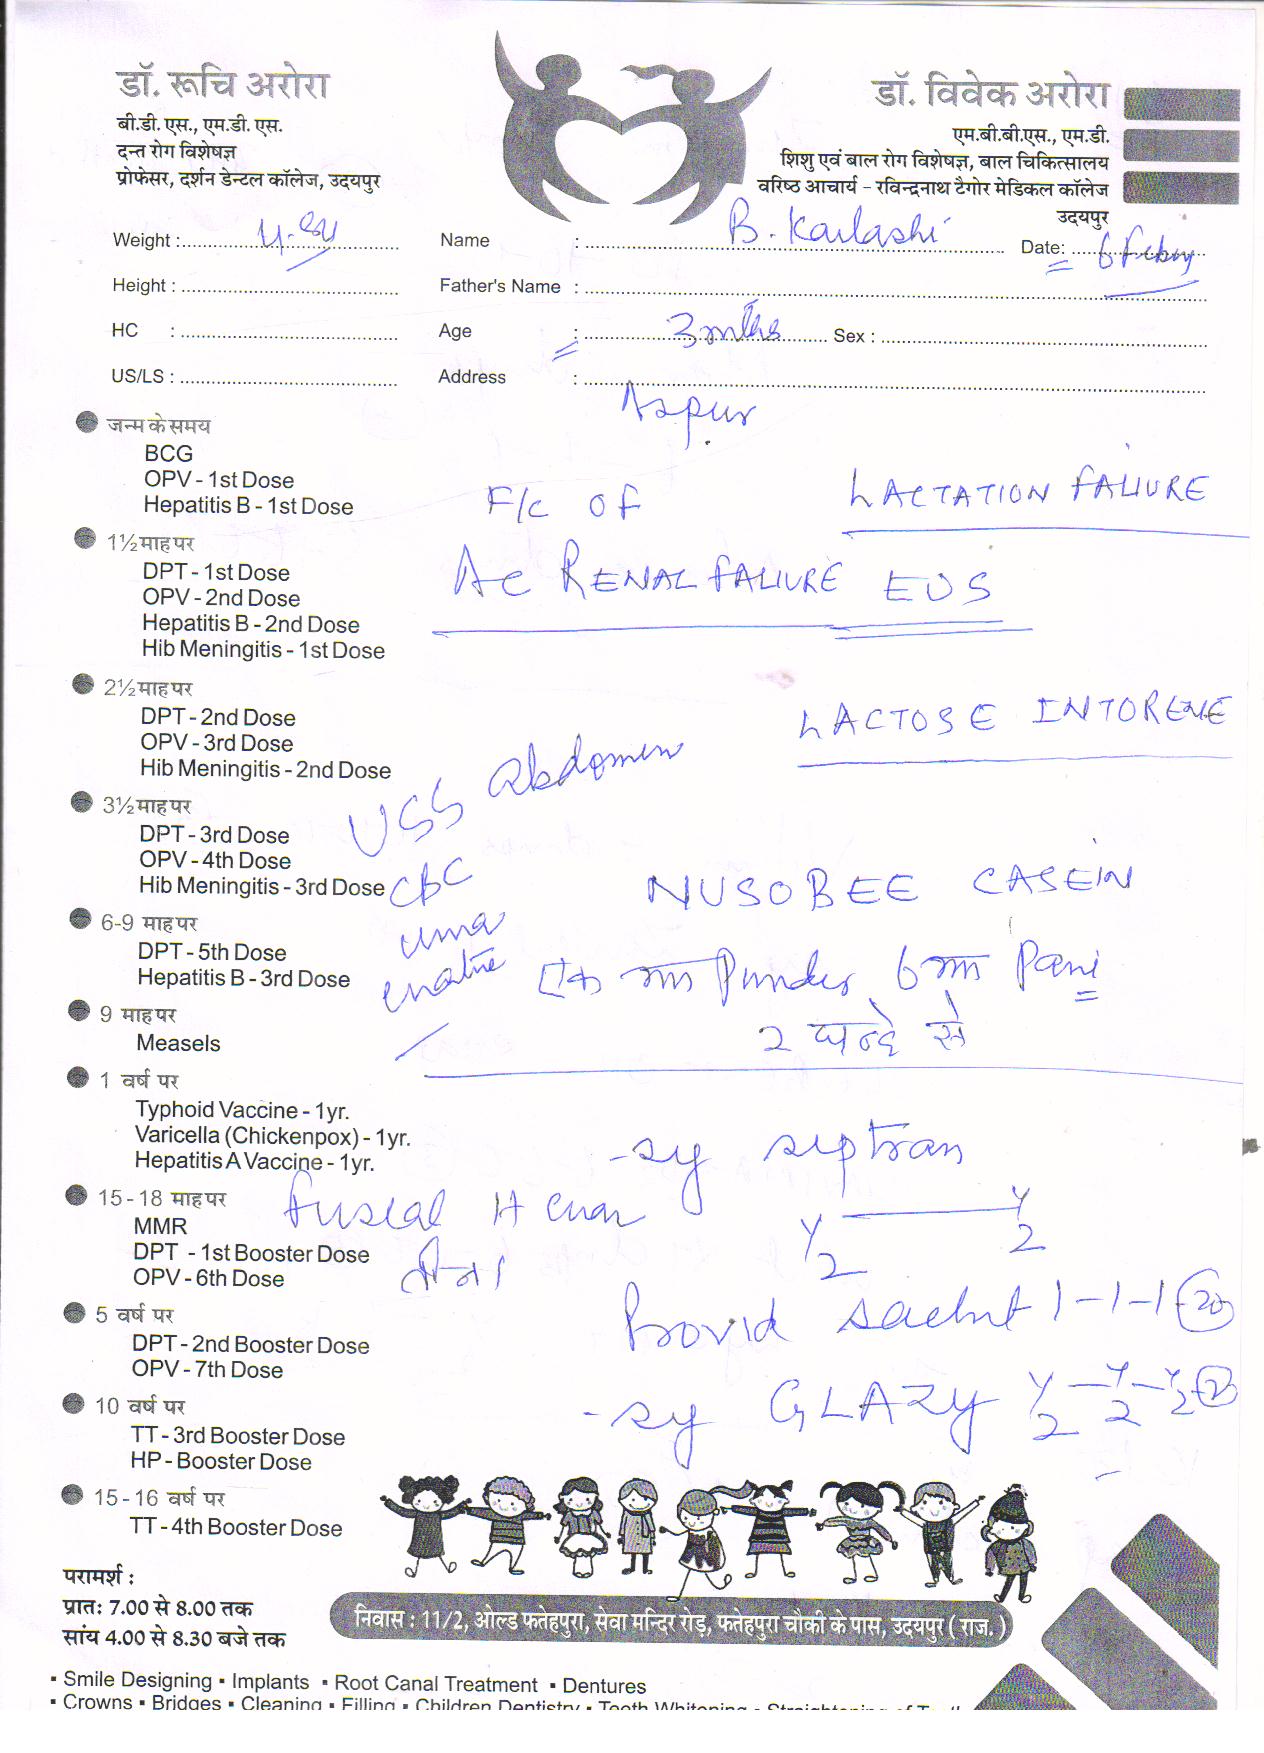 डॉ. रूचि अरोरा
बी.डी. एस., एम.डी. एस.
दन्त रोग विशेषज्ञ
प्रोफेसर, दर्शन डेन्टल कॉलेज, उदयपुर
डॉ. विवेक अरोरा
एम.बी.बी.एस., एम.डी.
शिशु एवं बाल रोग विशेषज्ञ, बाल चिकित्सालय
वरिष्ठ आचार्य - रविन्द्रनाथ टैगोर मेडिकल कॉलेज
उदयपुर
Weight : Name : B. Kailashi Date:
Height : Father's Name :
HC : Age : 3 mths Sex :
US/LS : Address :
Aspur
जन्म के समय
BCG
OPV - 1st Dose
Hepatitis B - 1st Dose
F/c OF LACTATION FALIURE
1½ माह पर
DPT - 1st Dose
OPV - 2nd Dose
Hepatitis B - 2nd Dose
Hib Meningitis - 1st Dose
Ac RENAL FALIURE EOS
2½ माह पर
DPT - 2nd Dose
OPV - 3rd Dose
Hib Meningitis - 2nd Dose
LACTOSE INTORENE
USG Abdomen
3½ माह पर
DPT - 3rd Dose
OPV - 4th Dose
Hib Meningitis - 3rd Dose
CBC
NUSOBEE CASEIN
6-9 माह पर
DPT - 5th Dose
Hepatitis B - 3rd Dose
Pani
2 घन्टे से
9 माह पर
Measels
1 वर्ष पर
Typhoid Vaccine - 1yr.
Varicella (Chickenpox) - 1yr.
Hepatitis A Vaccine - 1yr.
- sy septran
½ — ½
15 - 18 माह पर
MMR
DPT - 1st Booster Dose
OPV - 6th Dose
sachet 1-1-1
5 वर्ष पर
DPT - 2nd Booster Dose
OPV - 7th Dose
- sy GLAZY ½ — ½ — ½
10 वर्ष पर
TT - 3rd Booster Dose
HP - Booster Dose
15 - 16 वर्ष पर
TT - 4th Booster Dose
परामर्श :
प्रातः 7.00 से 8.00 तक
सांय 4.00 से 8.30 बजे तक
निवास : 11/2, ओल्ड फतेहपुरा, सेवा मन्दिर रोड़, फतेहपुरा चौकी के पास, उदयपुर ( राज. )
▪ Smile Designing ▪ Implants ▪ Root Canal Treatment ▪ Dentures
▪ Crowns ▪ Bridges ▪ Cleaning ▪ Filling ▪ Children Dentistry ▪ Teeth Whitening ▪